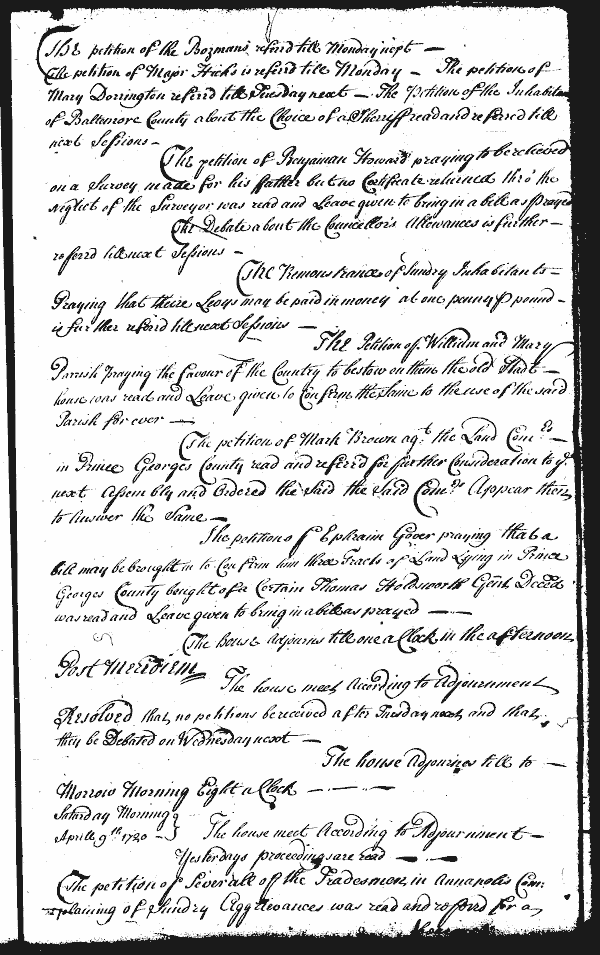 The petition of the Bozmans referd till Monday next —
The petition of Major Hicks is referd till Monday — The petition of
Mary Dorrington referrd till Tuesday next — The Petition of the Inhabitan
of Baltemore County about the Choice of a Sherriff read and referred till
next Sessions —
The petition of Benjaman Howard praying to be relieved
on a Survey made for his father but no Certificate returned thrô the
neglect of the Surveyor was read and Leave given to bring in a bill as prayed
The Debate about the Councellors Allowances is further —
referrd till next Sessions —
The Remonstrance of Sundry Inhabitants —
Praying that theire Levys may be paid in money at one penny ⅌ pound —
is further referd till next Sessions —
The Petition of William and Mary
Parrish praying the favour of the Country to bestow on them the old Stadt —
house was read and Leave given to Confirm the Same to the use of the said
Parish for ever —
The petition of Mark Brown agt. the Land Com.rs —
in Prince Georges County read and referrd for further Consideration to ye.
next Assembly and Ordered the said the said Com.rs Appear then
to Answer the Same —
The petition of Ephraim Gover praying that a
bill may be brought in to Confirm him three Tracts of Land Lying in Prince
Georges County bought of a Certain Thomas Holdsworth Gent. Deced
was read and Leave given to bring in a bill as prayed —
The House Adjourns till one a Clock in the afternoon
Post Meridiem
The house meet According to Adjournment
Resolved that no petitions be received after Tuesday next and that
they be Debated on Wednesday next —
The house Adjournes till to —
Morrow Morning Eight a Clock —
Saturday Morning
Aprill 9th 1720 — } The house meet According to Adjournment —
Yesterdays proceedings are read —
The petition of Severall of the Tradesmen in Annapolis Com:
plaining of Sundry Aggrievances was read and referrd for a